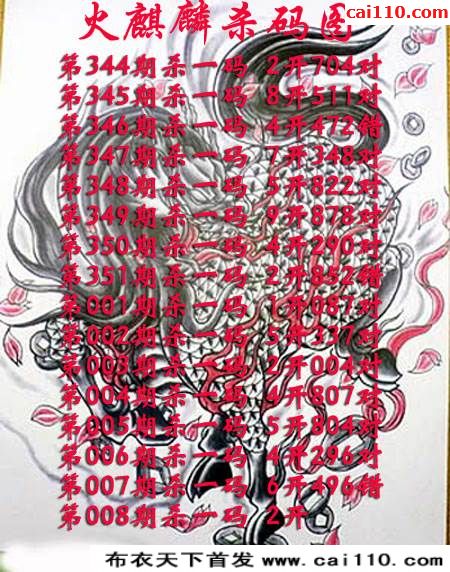 cai110.com
火麒麟杀码图
第344期杀一码 2开704对
第345期杀一码 8开511对
第346期杀一码 4开472错
第347期杀一码 7开348对
第348期杀一码 5开822对
第349期杀一码 9开878对
第350期杀一码 4开290对
第351期杀一码 2开852错
第001期杀一码 1开087对
第002期杀一码 5开337对
第003期杀一码 2开004对
第004期杀一码 4开807对
第005期杀一码 5开804对
第006期杀一码 4开296对
第007期杀一码 6开496错
第008期杀一码 2开
布衣天下首发 www.cai110.com